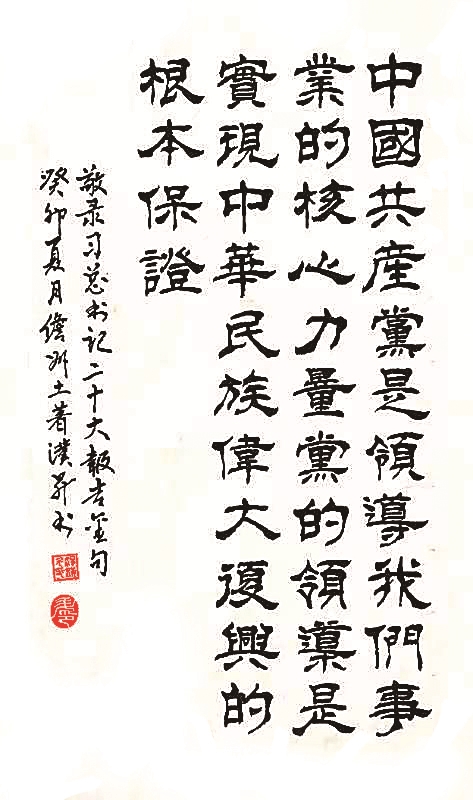 中國共産黨是領導我們事
業的核心力量黨的領導是
實現中華民族偉大復興的
根本保證
敬录习总书记二十大報告金句
癸卯夏月儋州土著濮昇书